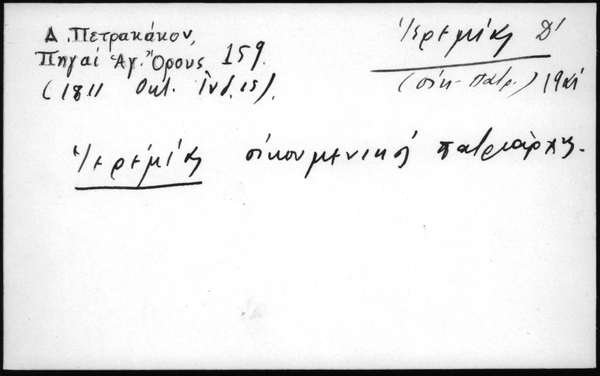 Δ. Πετρακάκου,
Πηγαί Ἁγ. Ὄρους 159.
(1811 Οκτ. Ἰνδ. 15).
Ἱερεμίας Δ'
(οἰκ. πατρ.)
Ἱερεμίας οἰκουμενικός πατριάρχης.